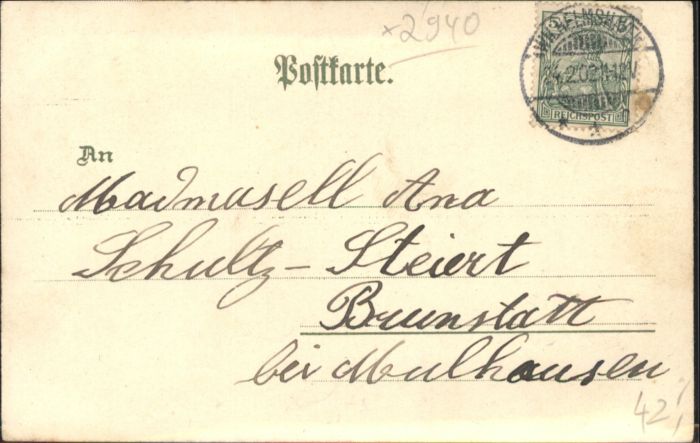 ×2940
Postkarte.
REICHSPOST
An
Madmusell Ana
Schultz - Steiert
Brunstatt
bei Mulhausen
42